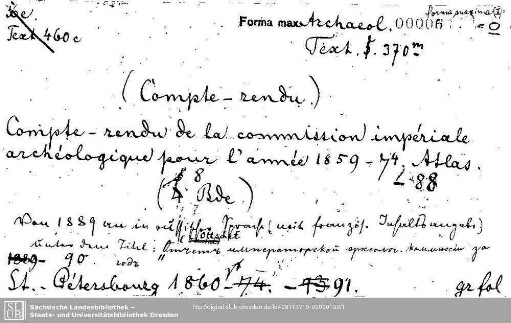 Text 460c
Forma max. Archaeol. 00006
Text. 370m
(Compte-rendu)
Compte-rendu de la commission impériale
archéologique pour l'année 1859-74. Atlas.
-88
8
(4 Bde)
Von 1889 an in russischer Sprache (mit französ. Inhaltsangabe)
unter dem Titel: Отчетъ императорской археолог. коммиссіи за
1889-90. годъ
St. Pétersbourg 1860-74. -91. gr fol
SLUB
Sächsische Landesbibliothek –
Staats- und Universitätsbibliothek Dresden